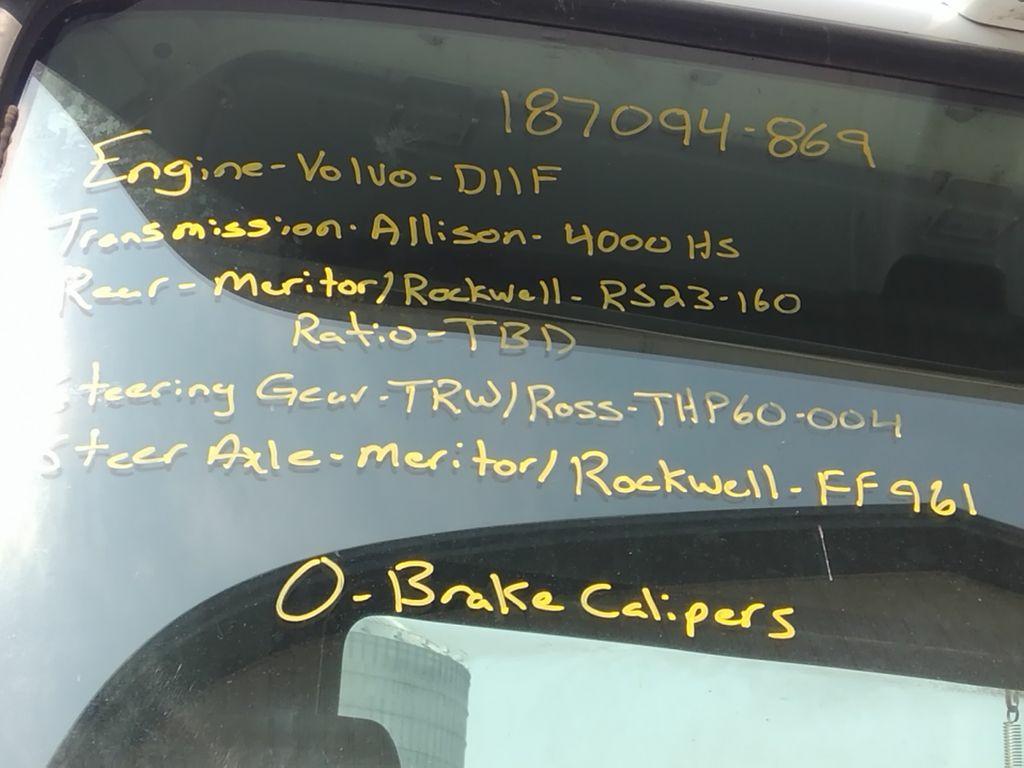 187094-869
Engine-Volvo-D11F
Transmission-Allison-4000 HS
Rear-Meritor/Rockwell-RS23-160
Ratio-TBD
Steering Gear-TRW/Ross-THP60-004
Steer Axle-Meritor/Rockwell-FF961
0-Brake Calipers